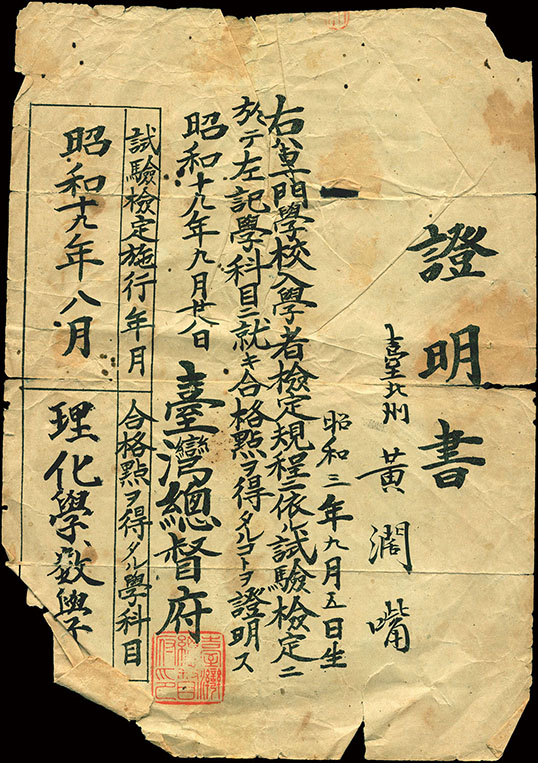 證明書
臺北州 黃濶嘴
昭和三年九月五日生
右ハ專門學校入學者檢定規程ニ依ル試驗檢定ニ
於テ左記學科目ニ就キ合格點ヲ得タルコトヲ證明ス
昭和十九年九月廿八日
臺灣總督府
臺灣總督府印
試驗檢定施行年月 合格點ヲ得タル學科目
昭和十九年八月 理化學、數學